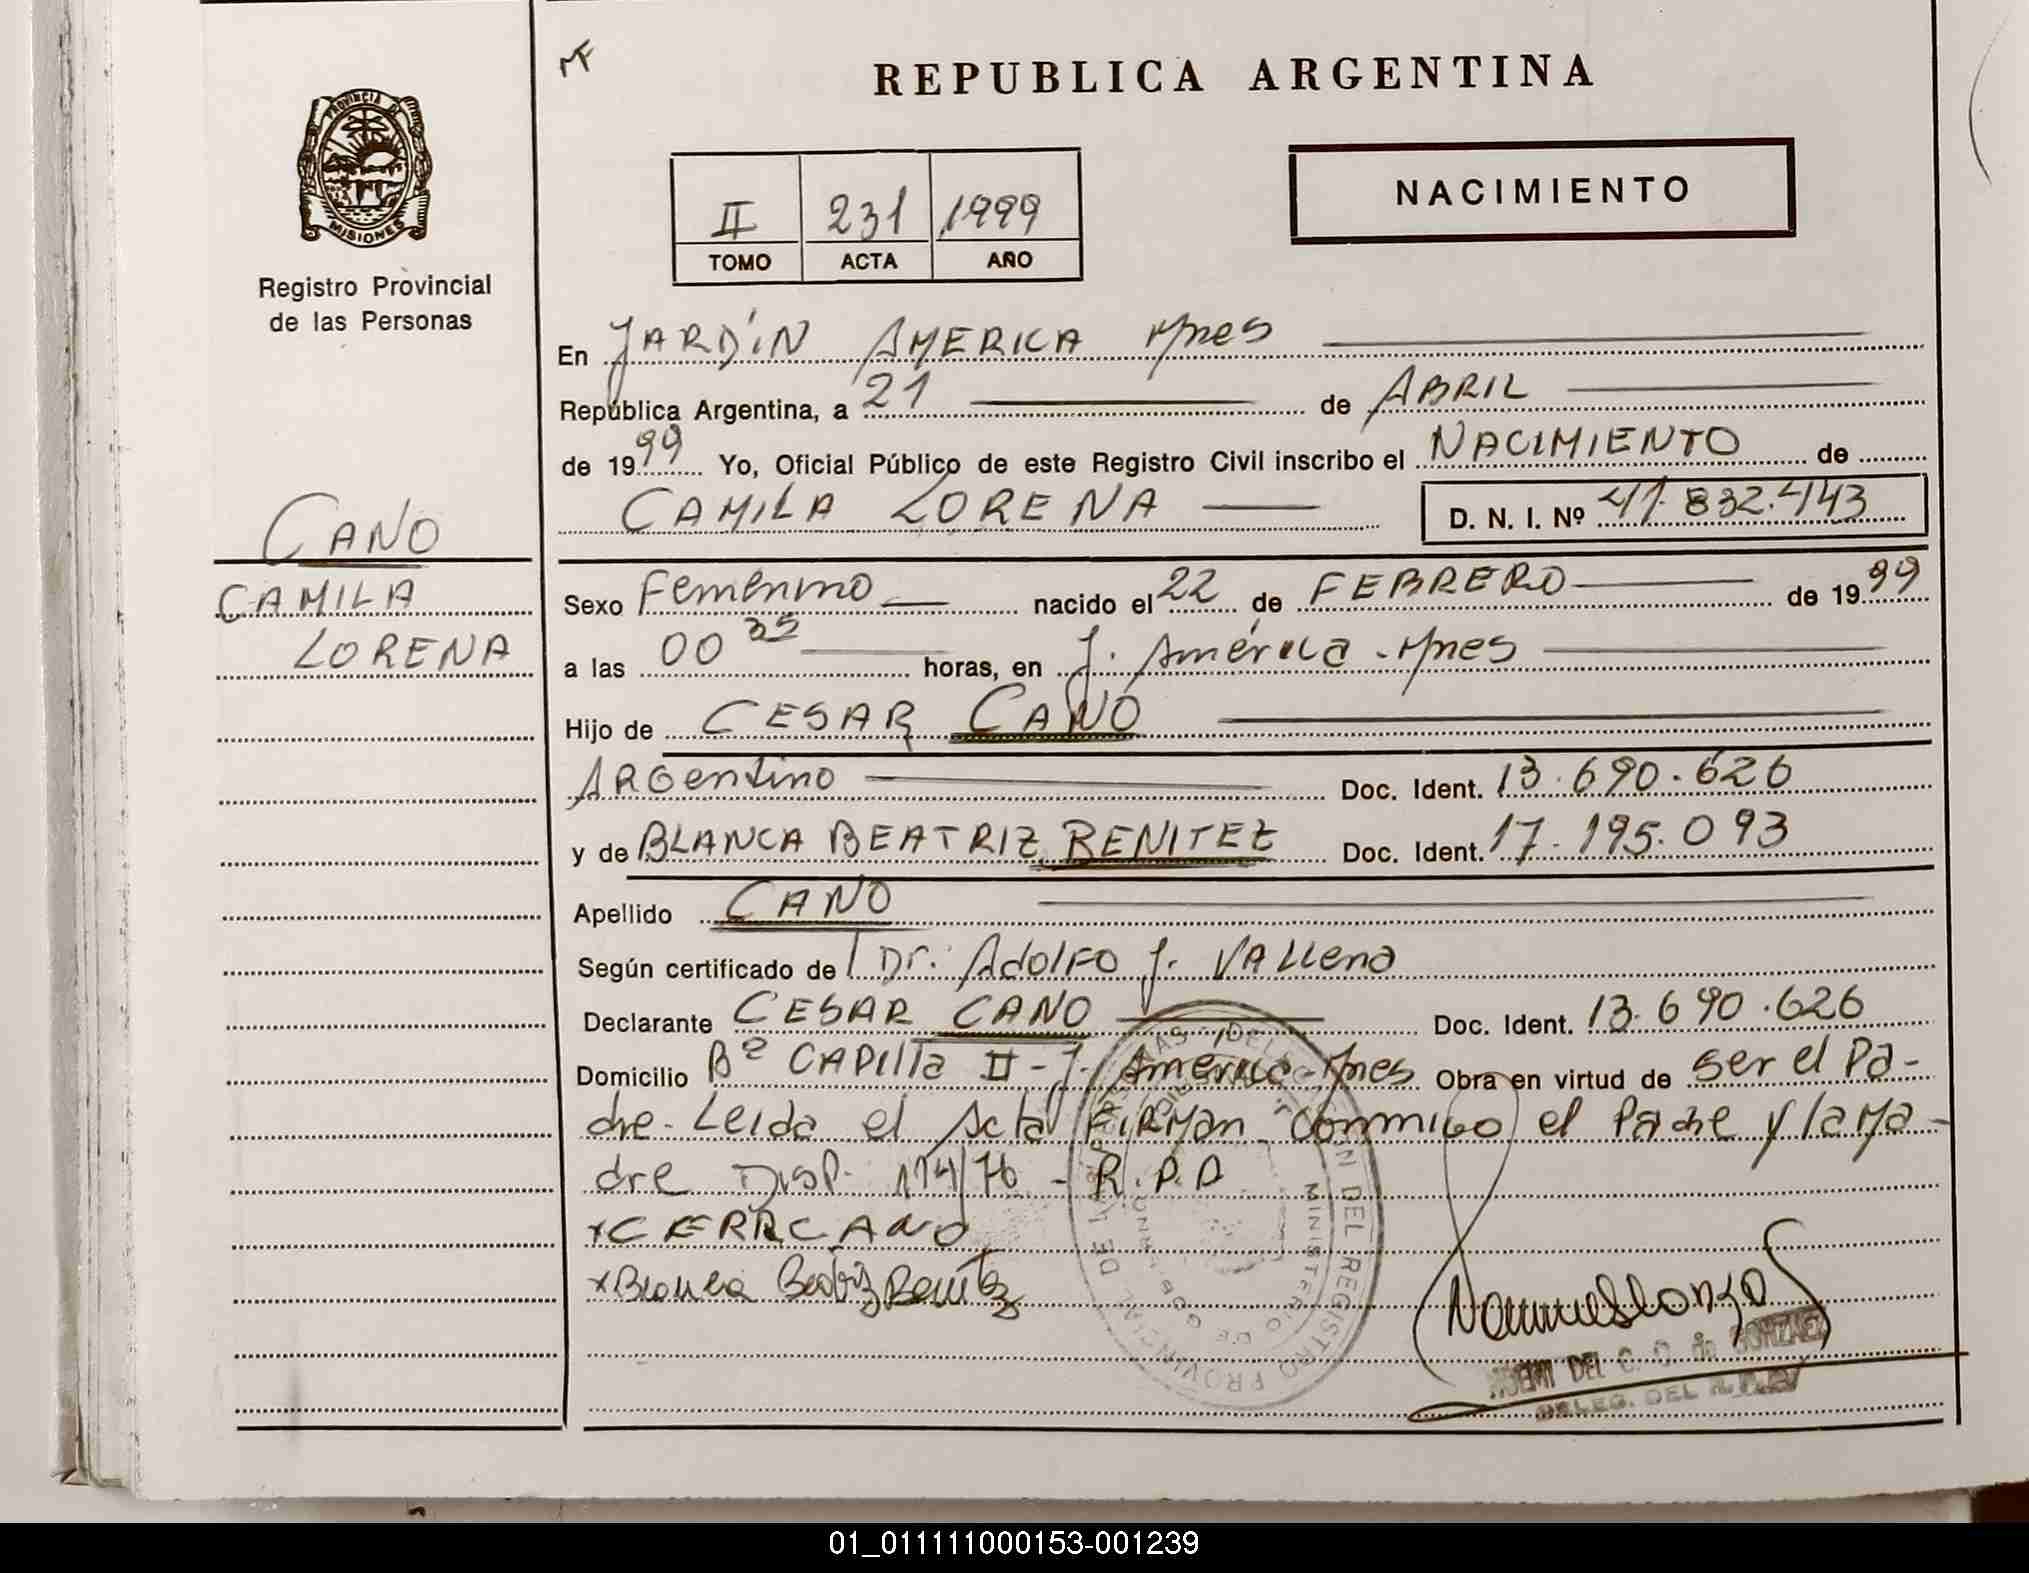 MF
REPUBLICA ARGENTINA
PROVINCIA DE
MISIONES
Registro Provincial
de las Personas
II 231 1999
TOMO ACTA AÑO
NACIMIENTO
En JARDÍN AMERICA Mnes
República Argentina, a 21 de ABRIL
de 1999 Yo, Oficial Público de este Registro Civil inscribo el NACIMIENTO de
CAMILA LORENA D. N. I. Nº 41.832.443
CANO
CAMILA
LORENA
Sexo Femenino nacido el 22 de FEBRERO de 1999
a las 00 35 horas, en J. América - Mnes
Hijo de CESAR CANO
ARGentino Doc. Ident. 13.690.626
y de BLANCA BEATRIZ BENITEZ Doc. Ident. 17.195.093
Apellido CANO
Según certificado de Dr. Adolfo J. VALLena
Declarante CESAR CANO Doc. Ident. 13.690.626
Domicilio Bº CAPilla II - J. América - Mnes Obra en virtud de ser el Pa-
dre - Leida el Acta FIRMan conmigo el Padre y la Ma-
dre DISP. 174/76 - R.P.P.
x CERRCANO
x Blanca Beatriz Benitez
DEL REGISTRO PROVINCIAL DE
MINISTERIO DE GOB
NOEMI DEL C. GONZALEZ
DELEG. DEL R.P.P.
01_011111000153-001239